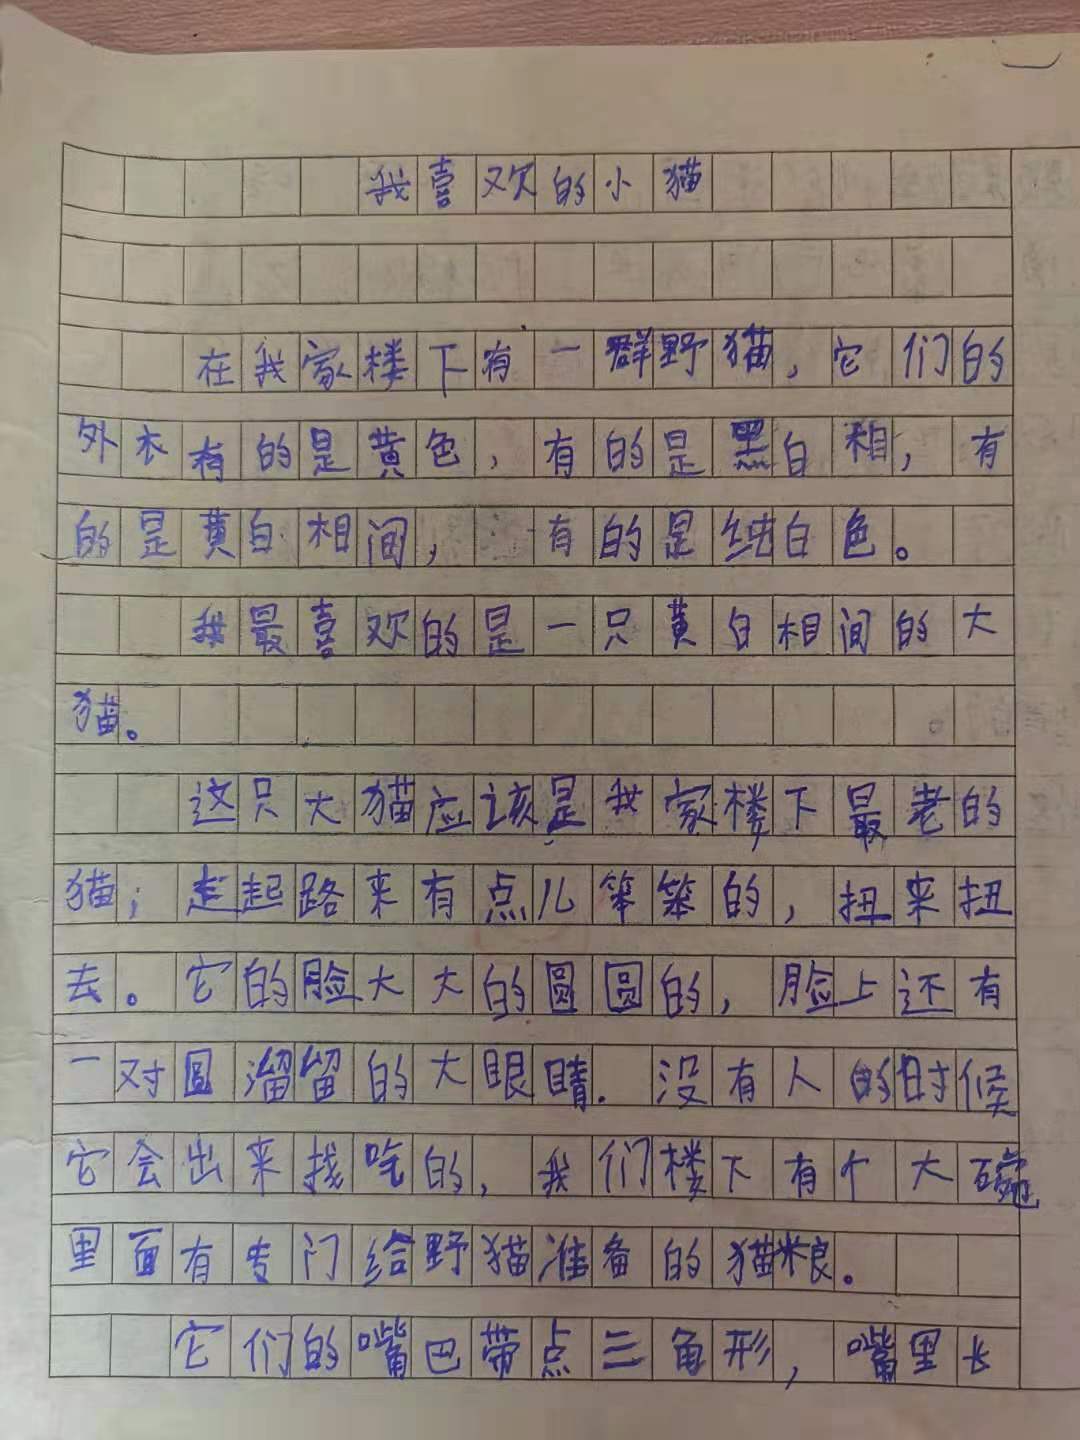 我喜欢的小猫
在我家楼下有一群野猫，它们的
外衣有的是黄色，有的是黑白相，有
的是黄白相间，有的是纯白色。
我最喜欢的是一只黄白相间的大
猫。
这只大猫应该是我家楼下最老的
猫；走起路来有点儿笨笨的，扭来扭
去。它的脸大大的圆圆的，脸上还有
一对圆溜留的大眼睛．没有人的时候
它会出来找吃的，我们楼下有个大碗
里面有专门给野猫准备的猫粮。
它们的嘴巴带点三角形，嘴里长